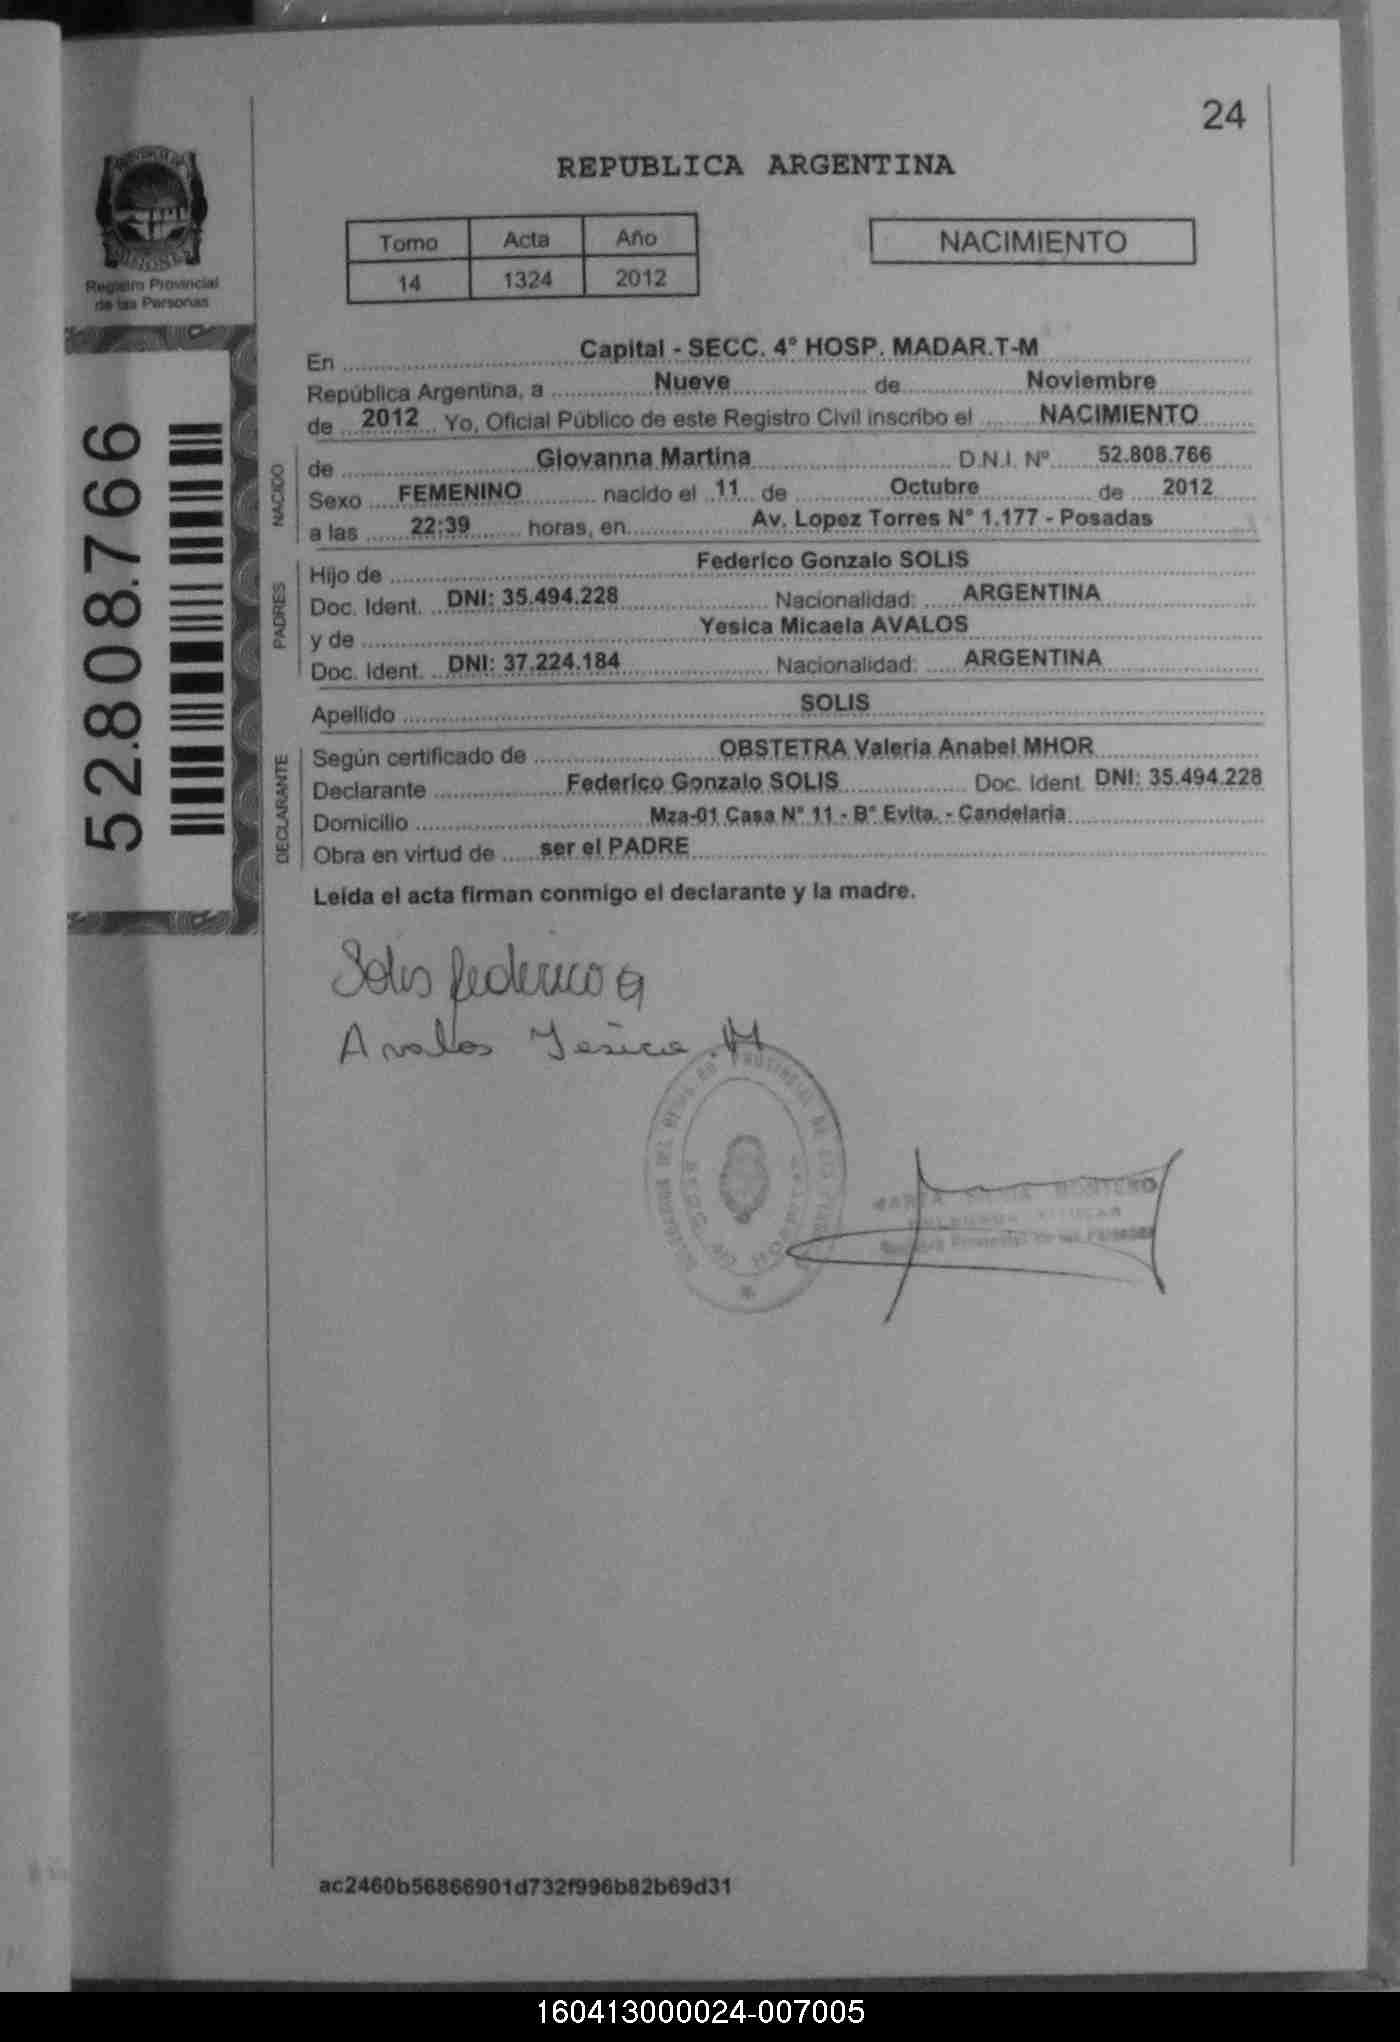 24
REPUBLICA ARGENTINA
Tomo Acta Año
14 1324 2012
NACIMIENTO
Registro Provincial
de las Personas
52.808.766
En Capital - SECC. 4° HOSP. MADAR.T-M
República Argentina, a Nueve de Noviembre
de 2012 Yo, Oficial Público de este Registro Civil inscribo el NACIMIENTO
NACIDO
de Giovanna Martina D.N.I. Nº 52.808.766
Sexo FEMENINO nacido el 11 de Octubre de 2012
a las 22:39 horas, en Av. Lopez Torres N° 1.177 - Posadas
PADRES
Hijo de Federico Gonzalo SOLIS
Doc. Ident. DNI: 35.494.228 Nacionalidad: ARGENTINA
y de Yesica Micaela AVALOS
Doc. Ident. DNI: 37.224.184 Nacionalidad: ARGENTINA
Apellido SOLIS
DECLARANTE
Según certificado de OBSTETRA Valeria Anabel MHOR
Declarante Federico Gonzalo SOLIS Doc. Ident. DNI: 35.494.228
Domicilio Mza-01 Casa N° 11 - B° Evita. - Candelaria
Obra en virtud de ser el PADRE
Leida el acta firman conmigo el declarante y la madre.
Solis federico G
Avalos Yesica .M
MONTERO
Provincial de las Personas
ac2460b56866901d732f996b82b69d31
160413000024-007005